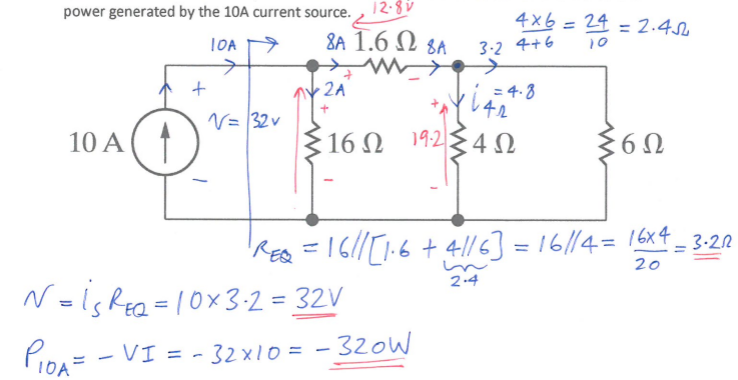 power generated by the 10A current source.
12.8V
4×6 = 24 = 2.4Ω
4+6 10
10A
8A 1.6 Ω 8A
3.2
+ -
+
V= 32V
-
2A
+
-
i4Ω = 4.8
+
-
10 A
16 Ω
19.2
4 Ω
6 Ω
REQ = 16//[1.6 + 4//6] = 16//4 = 16×4 = 3.2Ω
20
2.4
V = iS REQ = 10×3.2 = 32V
P10A = - VI = - 32×10 = - 320W